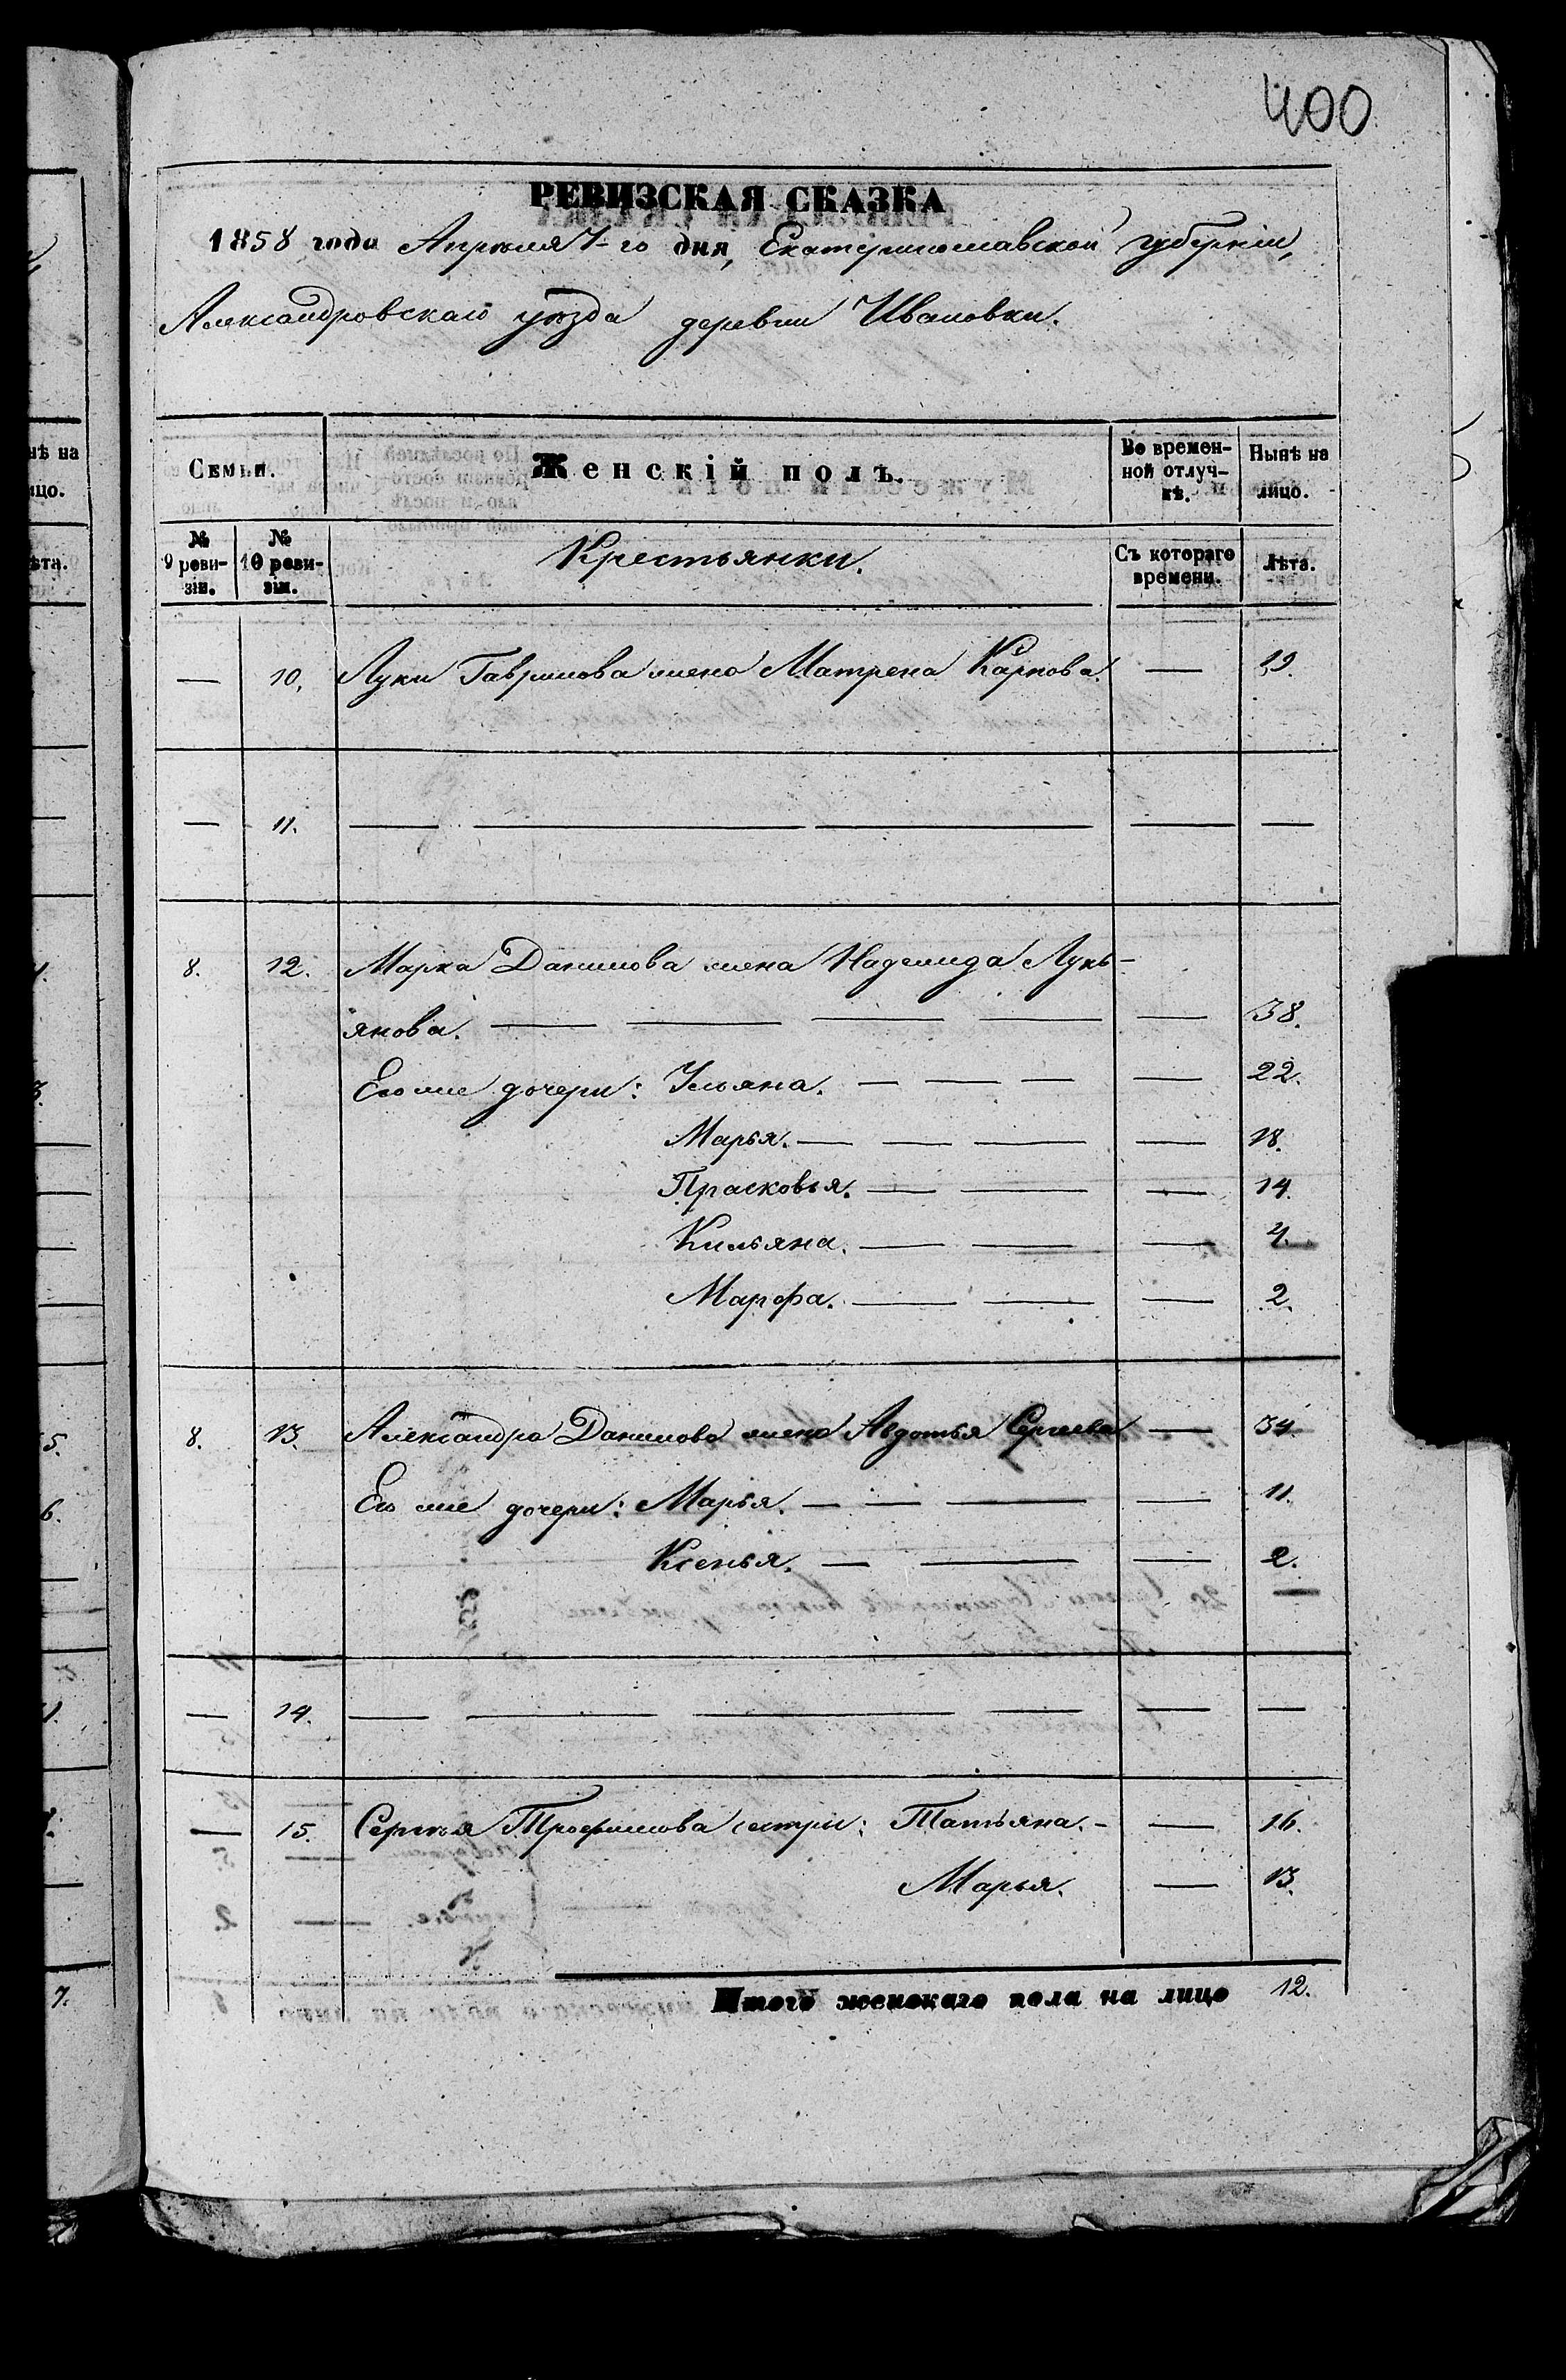 400
РЕВИЗСКАЯ СКАЗКА
1858 года Апреля 7-го дня, Екатеринославской губерніи,
Александровскаго уѣзда деревни Ивановки.
Семьи. Женскій полъ. Во времен-ной отлуч-кѣ. Нынѣ на лицо.
№ 9 реви-зіи. № 10 реви-зіи. Крестьянки. Съ котораго времени. Лѣта.
— 10. Луки Гаврилова жена Матрена Карпова. — 19.
— 11. — — — — —
8. 12. Марка Данилова жена Надежида Лукь-
янова. — — — — — 38.
Его же дочери: Ульяна. — — — — 22.
Марья. — — — — 18.
Прасковья. — — — 14.
Кильяна. — — — 4.
Марфа. — — — 2.
8. 13. Александра Данилова жена Авдотья Сергеева — 34.
Его же дочери: Марья. — — — — 11.
Ксенья. — — — 2.
— 14. — — — — — —
— 15. Сергѣя Трофимова сестры: Татьяна. - — 16.
Марья. — 13.
Итого женскаго пола на лицо 12.